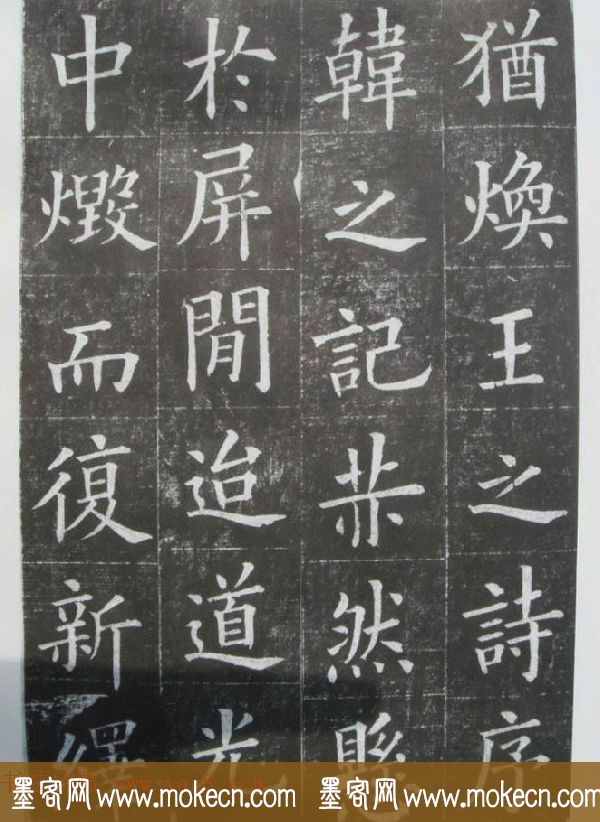 猶煥王之詩序
韓之記然懸
於屏閒迨道光
中燬而復新
墨客网 www.mokecn.com 墨客网 www.mokecn.com